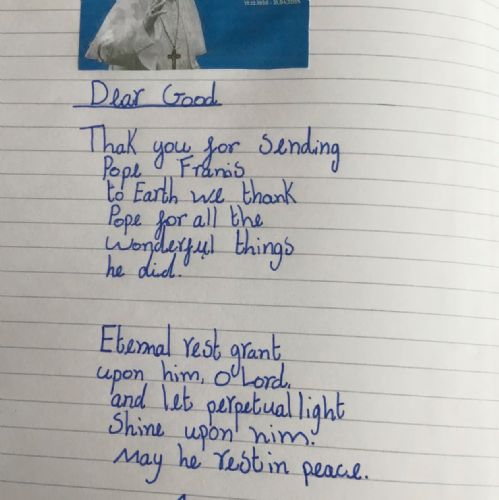 Dear Good
Thak you for sending
Pope Franis
to Earth we thank
Pope for all the
wonderful things
he did.
Eternal rest grant
upon him, O Lord,
and let perpetual light
Shine upon him.
May he rest in peace.